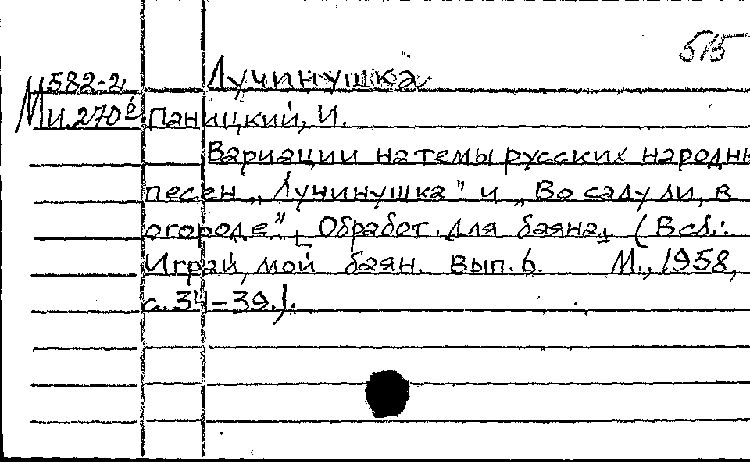 515
М 582-2 Лучинушка
И.270б Паницкий, И.
Вариации на темы русских народн
песен „Лучинушка" и „Во саду ли, в
огороде". [Обработ. для баяна] (В сб.:
Играй, мой баян. Вып. 6. М., 1958,
с. 34-39.).